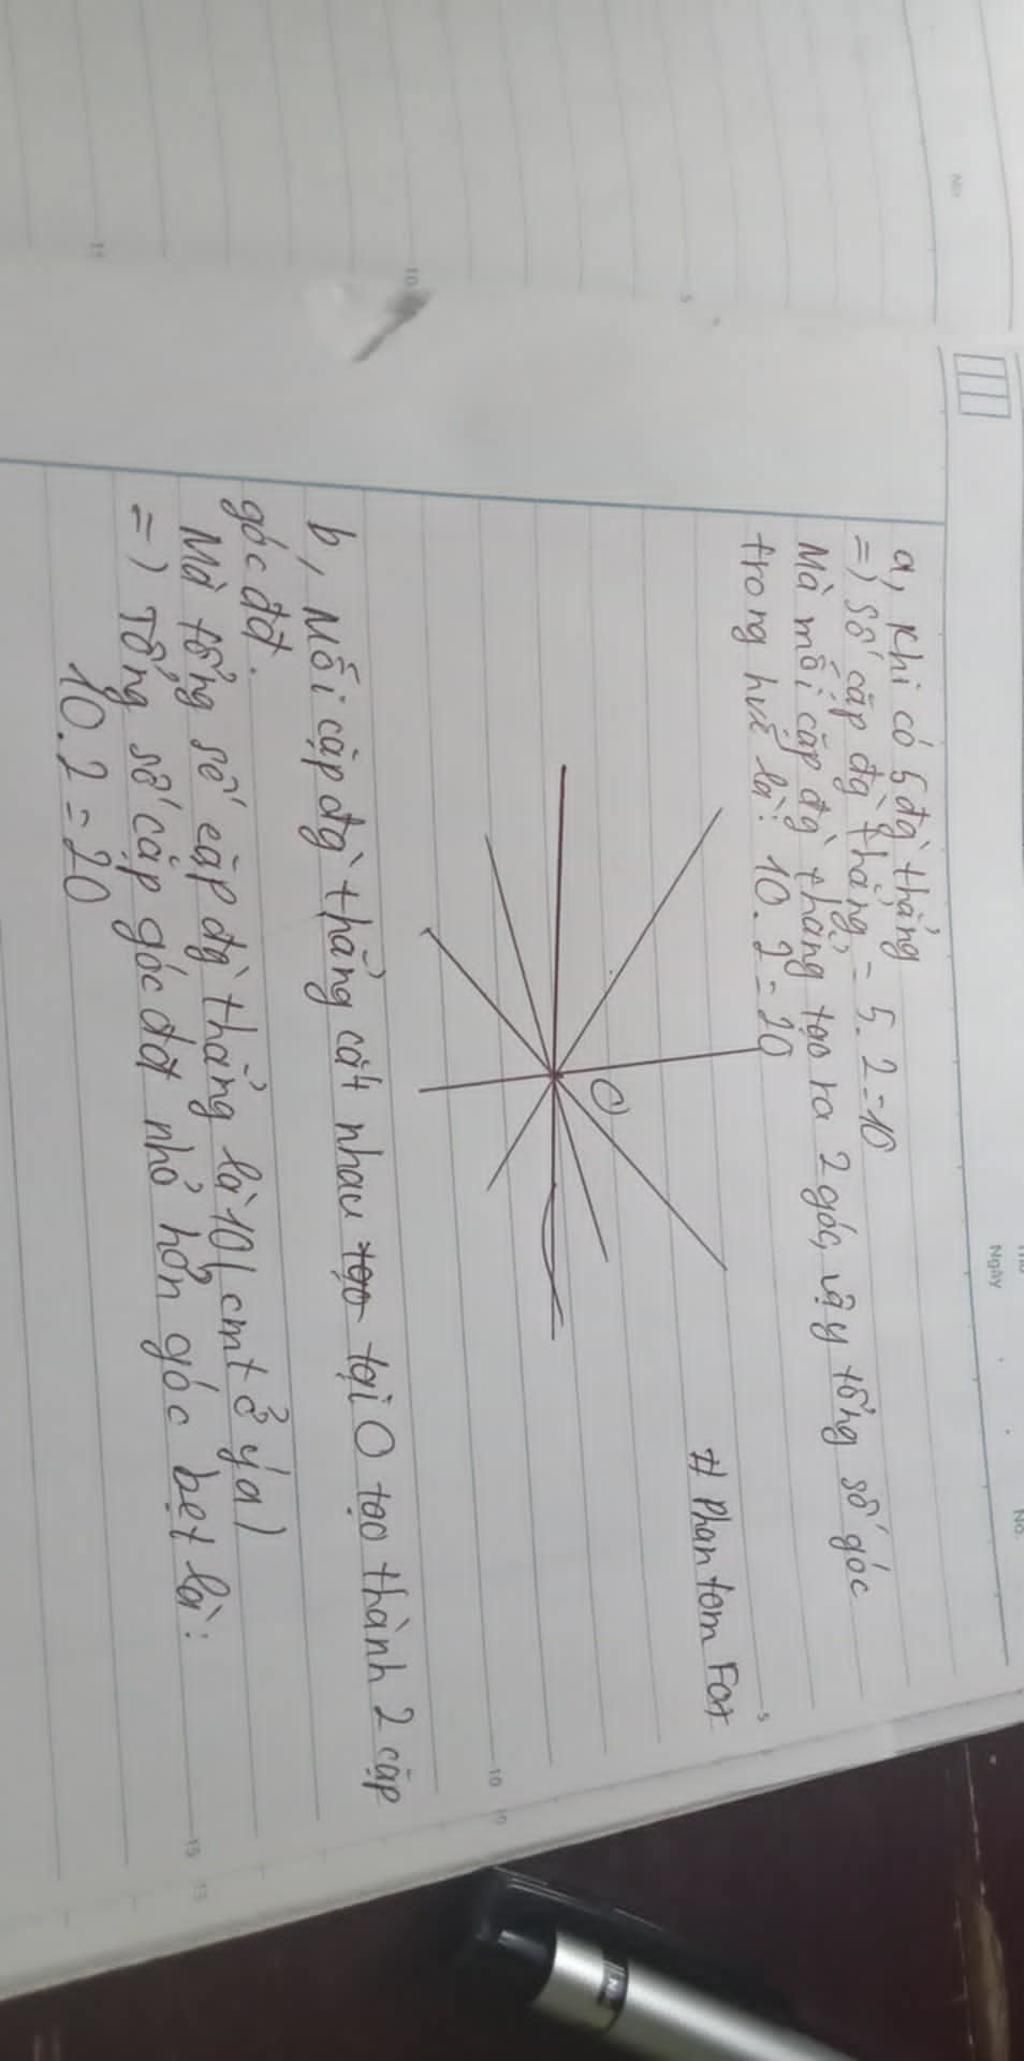 No.
Ngày
No.
a, Khi có 5 đg` thẳng
=) số cặp đg` thẳng = 5.2=10
Mà mỗi cặp đg` thẳng tạo ra 2 góc, vậy tổng số góc
trong hvẽ là: 10.2=20
# Phantom Fox
O
b, Mỗi cặp đg` thẳng cắt nhau tạo tại O tạo thành 2 cặp
góc đđ.
Mà tổng số cặp đg` thẳng là 10 (cmt ở ý a)
=) Tổng số cặp góc đđ nhỏ hơn góc bẹt là:
10.2=20
5
10
15
5
10
11
10
15